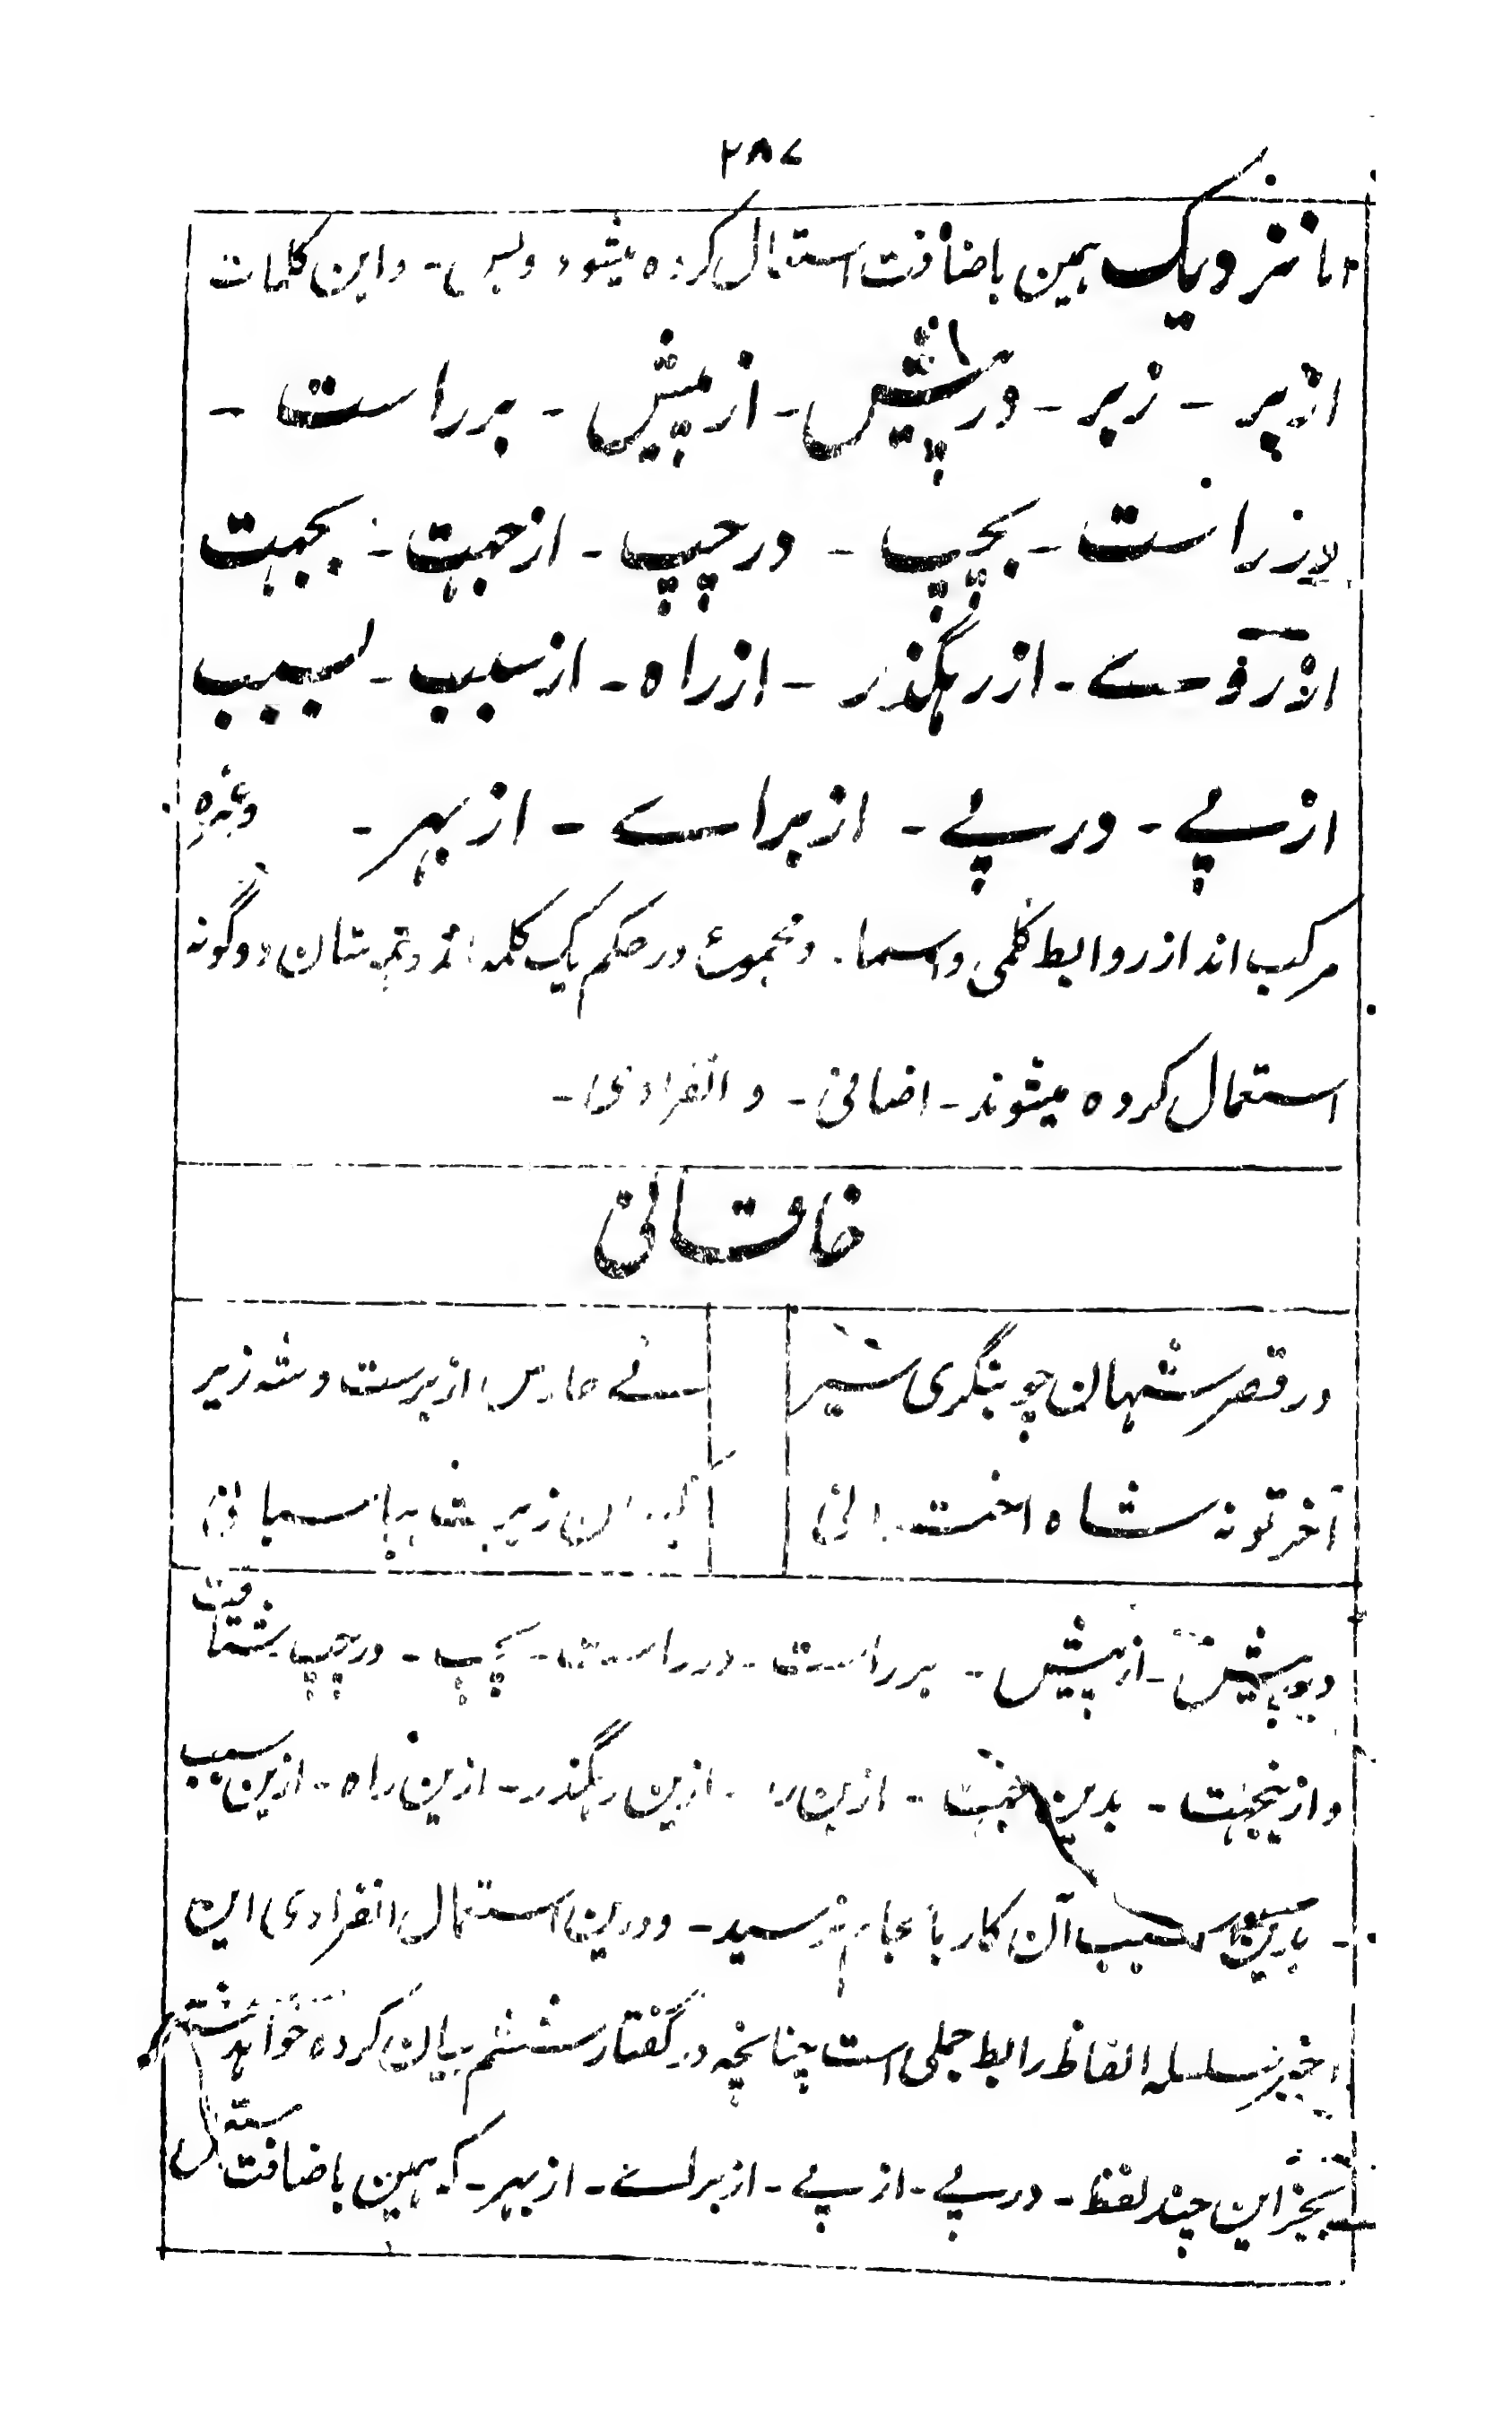 ۲۸۷
اما نزدیک ہمین باضافت استعمال کردہ میشود وبس۔ واین کلمات
ازبر ۔ زبر ۔ درپیش ۔ ازپیش ۔ برراست ۔
درراست ۔ بچپ ۔ درچپ ۔ ازجہت ۔ بجہت
ازروے ۔ ازرہگذر ۔ ازراہ ۔ ازسبب ۔ بسبب
ازپے ۔ درپے ۔ ازبراے ۔ ازبہر ۔ وغیرہ
مرکب اند از روابط کلمی واسما۔ ومجموع درحکم یک کلمہ اند دوگونہ
استعمال کردہ میشوند ۔ اضافی ۔ و انفرادی ۔
خاقانی
درقصر شہان چو بنگری سیر
نے حارس ازبرست وشہ زیر
آخر تونہ شاہ اختـ
زیر بشا بپاسبانی
ازپیش ۔ برراست ۔ درراست ۔ بچپ ۔ درچپ بشتافت
وازینجہت ۔ بدین جہت ۔ ازین رو ۔ ازین رہگذر ۔ ازین راہ ۔ ازین سبب
بدین سبب آن کار بانجام نرسید ۔ ودرین استعمال انفرادی این
اخیر سلسلہ الفاظ رابط جملی است چنانچہ درگفتار ششم بیان کردہ خواہد شد
بجز این چند لفظ ۔ درپے ۔ ازپے ۔ ازبراے ۔ ازبہر ۔ کہ ہمین باضافت مستعمل